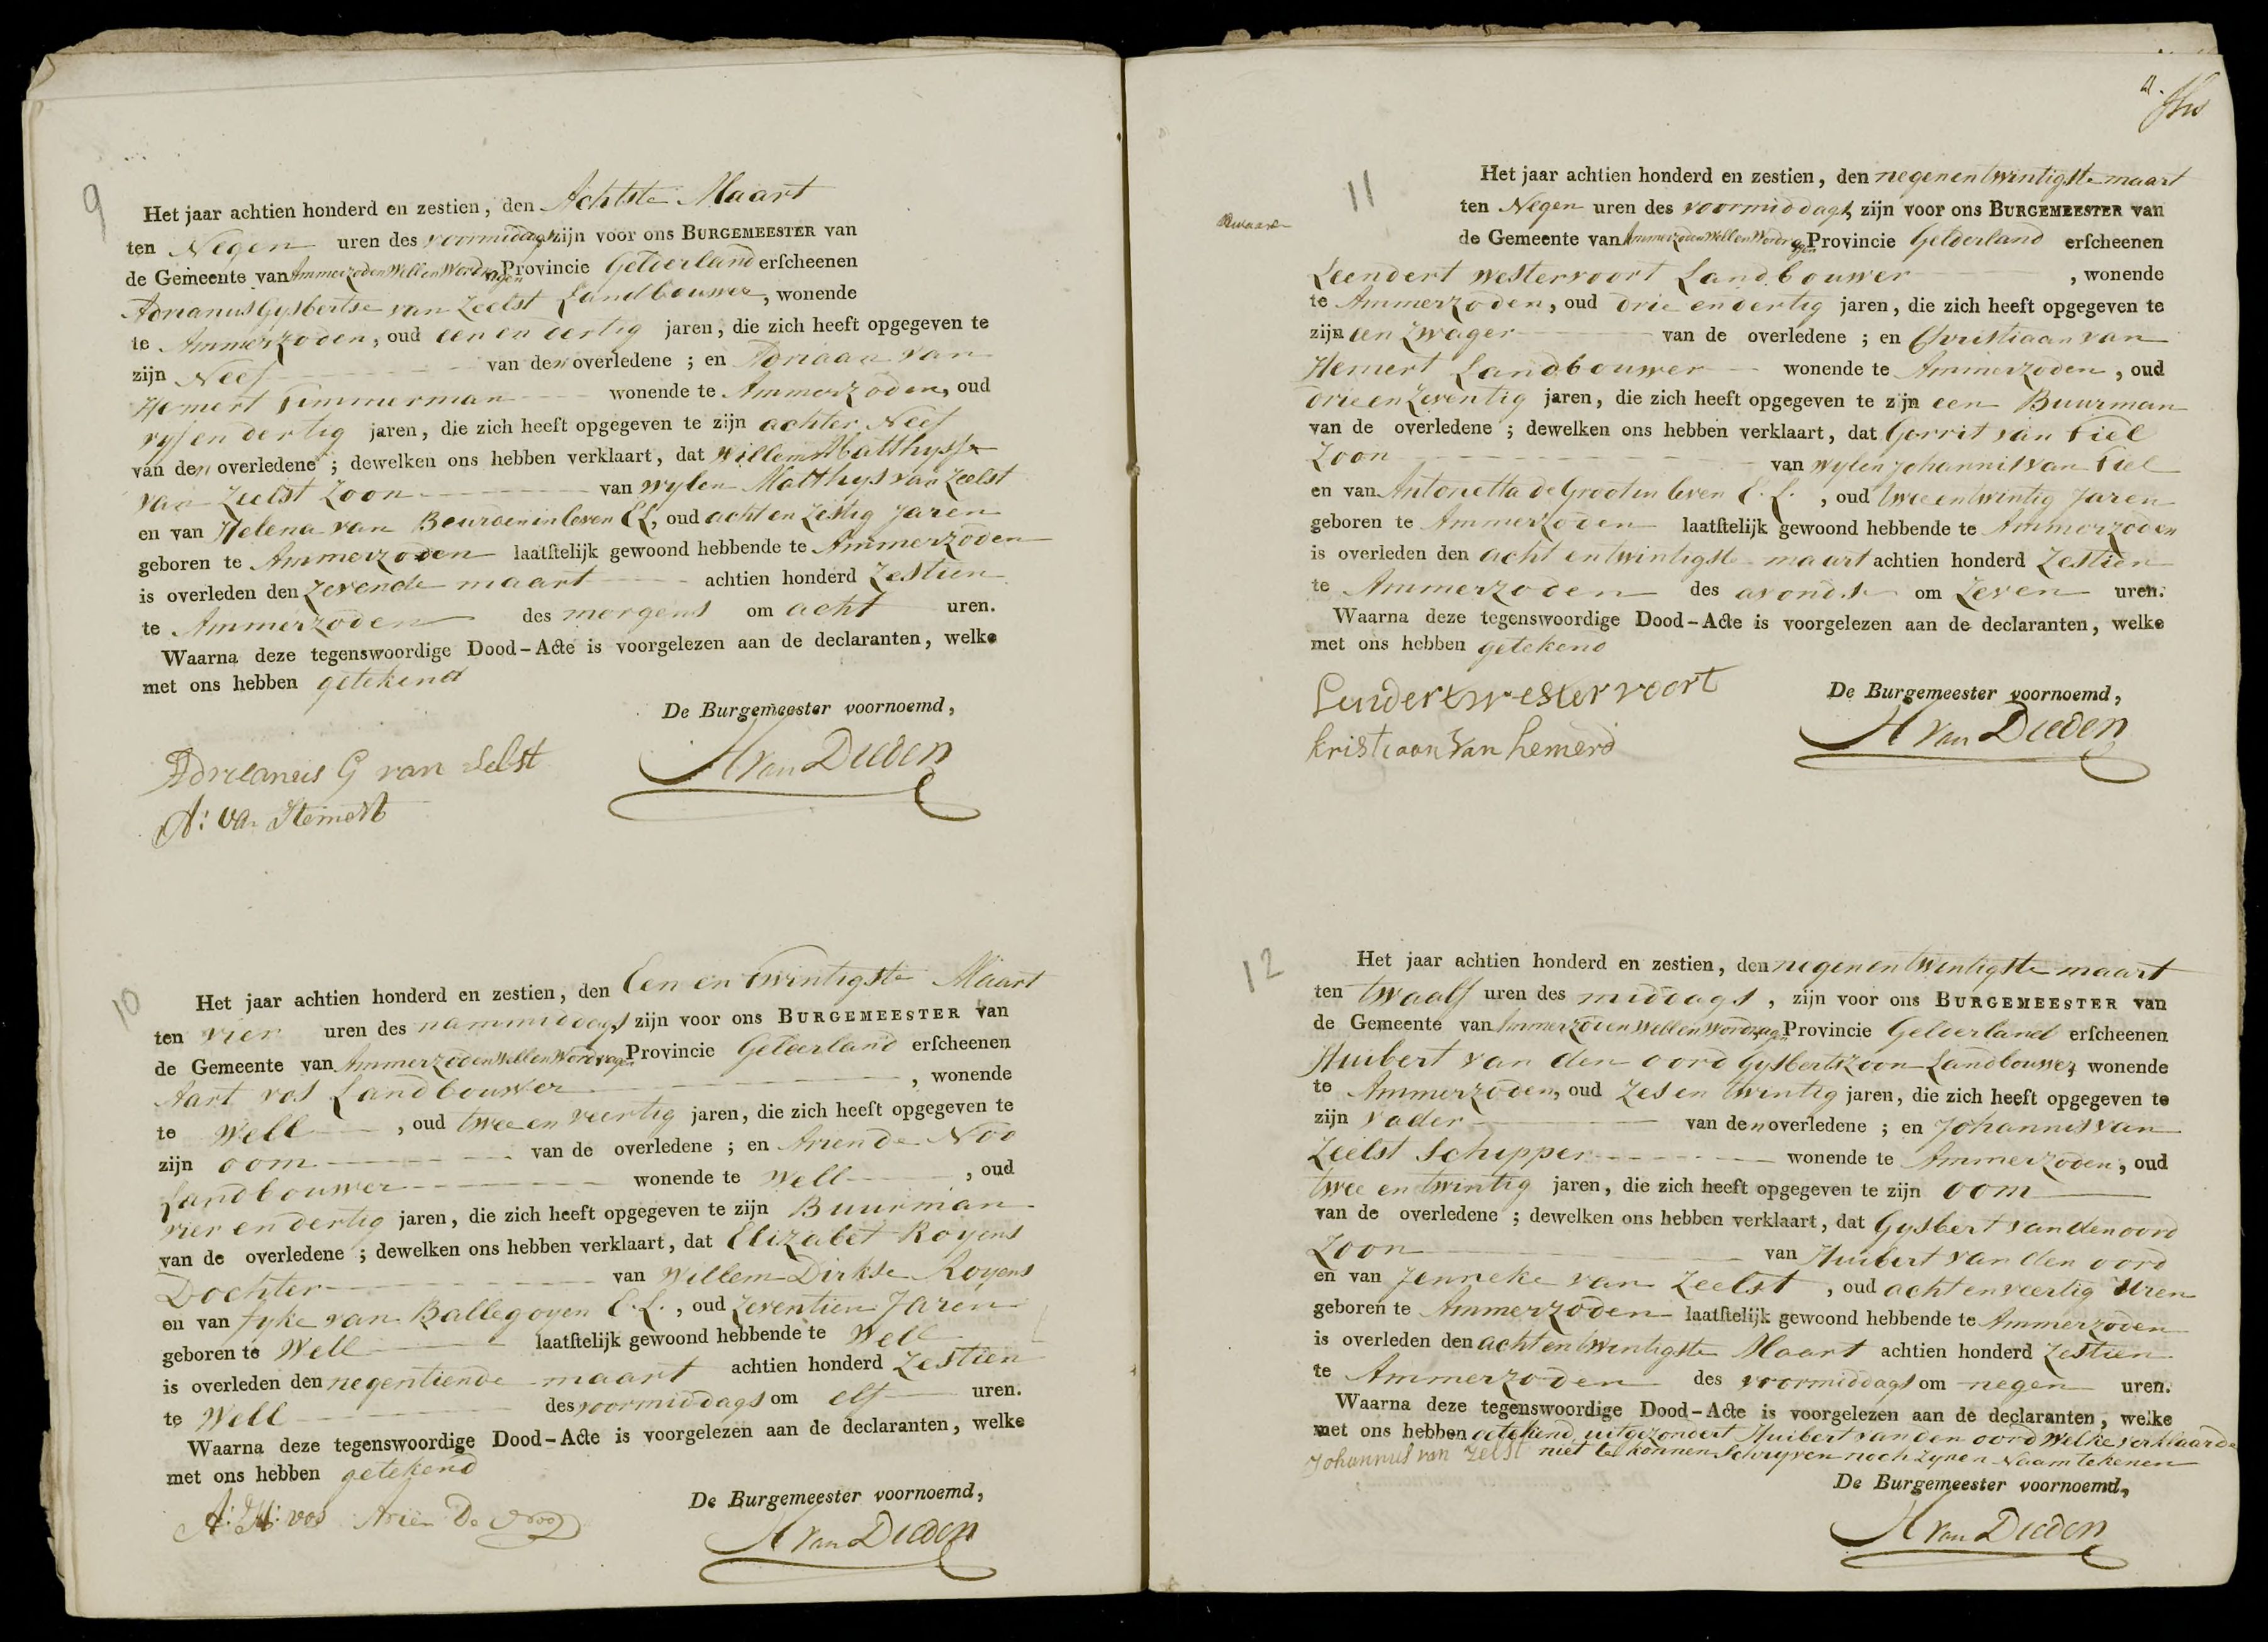 9
Het jaar achtien honderd en zestien, den Achtste Maart
ten Negen uren des voormiddags zijn voor ons BURGEMEESTER van
de Gemeente van Ammerzoden Well en Wordragen Provincie Gelderland erſcheenen
Adrianus Gysbertse van Zeelst Landbouwer, wonende
te Ammerzoden, oud een en dertig jaren, die zich heeft opgegeven te
zijn Neef van den overledene ; en Adriaan van
Hemert Timmerman wonende te Ammerzoden, oud
vyf en dertig jaren, die zich heeft opgegeven te zijn achter Neef
van den overledene ; dewelken ons hebben verklaart, dat Willem Matthysse
van Zeelst Zoon van wylen Matthys van Zeelst
en van Helena van Beurden in leven E.L, oud acht en Zestig Jaren
geboren te Ammerzoden laatſtelijk gewoond hebbende te Ammerzoden
is overleden den Zevende maart achtien honderd Zestien
te Ammerzoden des morgens om acht uren.
Waarna deze tegenswoordige Dood-Acte is voorgelezen aan de declaranten, welke
met ons hebben getekend
De Burgemeester voornoemd,
Adrieanus G van Selst
A: van Hemert
H van Dieden
10
Het jaar achtien honderd en zestien, den Een en twintigste Maart
ten vier uren des nammiddags zijn voor ons BURGEMEESTER van
de Gemeente van Ammerzoden Well en Wordragen Provincie Gelderland erſcheenen
Aart vos Landbouwer, wonende
te Well, oud twee en veertig jaren, die zich heeft opgegeven te
zijn oom van de overledene ; en Arien de Noo
Landbouwer wonende te Well, oud
vier en dertig jaren, die zich heeft opgegeven te zijn Buurman
van de overledene ; dewelken ons hebben verklaart, dat Elizabet Royens
Dochter van Willem Dirkse Royens
en van Fyke van Ballegoyen E.L., oud Zeventien Jaren
geboren te Well laatſtelijk gewoond hebbende te Well
is overleden den negentiende maart achtien honderd Zestien
te Well des voormiddags om elf uren.
Waarna deze tegenswoordige Dood-Acte is voorgelezen aan de declaranten, welke
met ons hebben getekend
De Burgemeester voornoemd,
A: M: vos Arie De
H van Dieden
11
Het jaar achtien honderd en zestien, den negen en twintigste maart
ten Negen uren des voormiddags, zijn voor ons BURGEMEESTER van
de Gemeente van Ammerzoden Well en Wordragen Provincie Gelderland erſcheenen
Leendert westervoort Landbouwer, wonende
te Ammerzoden, oud drie en dertig jaren, die zich heeft opgegeven te
zijn een Zwager van de overledene ; en Christiaan van
Hemert Landbouwer wonende te Ammerzoden, oud
drie en Zeventig jaren, die zich heeft opgegeven te zijn een Buurman
van de overledene ; dewelken ons hebben verklaart, dat Gerrit van Tiel
Zoon van wylen Johannis van Tiel
en van Antonetta de Groot in leven E.L., oud twee en twintig Jaren
geboren te Ammerzoden laatſtelijk gewoond hebbende te Ammerzoden
is overleden den acht en twintigste maart achtien honderd Zestien
te Ammerzoden des avonds om Zeven uren.
Waarna deze tegenswoordige Dood-Acte is voorgelezen aan de declaranten, welke
met ons hebben getekend
Lendert westervoort
De Burgemeester voornoemd,
kristiaan van hemerd
H van Dieden
12
Het jaar achtien honderd en zestien, den negen en twintigste maart
ten twaalf uren des middags, zijn voor ons BURGEMEESTER van
de Gemeente van Ammerzoden Well en Wordragen Provincie Gelderland erſcheenen
Huibert van den oord Gysbertszoon Landbouwer, wonende
te Ammerzoden, oud Zes en twintig jaren, die zich heeft opgegeven te
zijn vader van den overledene ; en Johannis van
Zeelst Schipper wonende te Ammerzoden, oud
twee en twintig jaren, die zich heeft opgegeven te zijn oom
van de overledene ; dewelken ons hebben verklaart, dat Gysbert van den oord
Zoon van Huibert van den oord
en van Jenneke van Zeelst, oud acht en veertig Uren
geboren te Ammerzoden laatſtelijk gewoond hebbende te Ammerzoden
is overleden den acht en twintigste Maart achtien honderd Zestien
te Ammerzoden des voormiddags om negen uren.
Waarna deze tegenswoordige Dood-Acte is voorgelezen aan de declaranten, welke
met ons hebben getekend uitgezondert Huibert van den oord Welke verklaarde
Johannis van Zelst niet te konnen Schryven noch Zynen Naam tekenen
De Burgemeester voornoemd,
H van Dieden